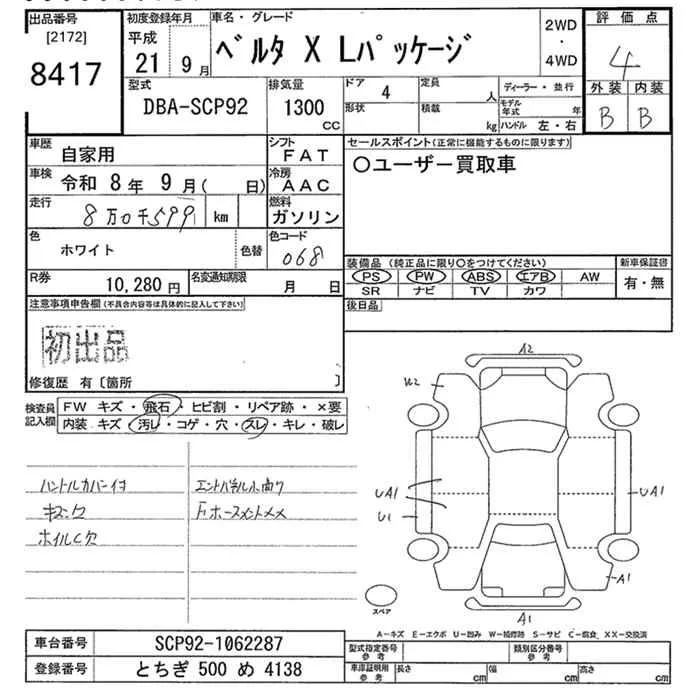 出品番号
[2172]
8417
初度登録年月
平成
21 9 月
車名・グレード
ベルタ X Lパッケージ
2WD
・
4WD
評価点
4
外装 内装
B B
型式
DBA-SCP92
排気量
1300
CC
ドア 4
定員 人
形状
積載 kg
ディーラー・並行
モデル年式 年
ハンドル 左・右
車歴 自家用
シフト FAT
車検 令和 8年 9月( 日)
冷房 AAC
走行 8万0千599 km
燃料 ガソリン
色 ホワイト 色替
色コード 068
R券 10,280円
名変通知期限 月 日
セールスポイント(正常に機能するものに限ります)
○ユーザー買取車
装備品(純正品に限り○をつけてください)
PS PW ABS エアB AW
SR ナビ TV カワ
新車保証書
有・無
後日品
注意事項申告欄(不具合内容等は具体的に記入して下さい)
初出品
修復歴 有〔箇所 〕
検査員記入欄
FW キズ・飛石・ヒビ割・リペア跡・×要
内装 キズ・汚レ・コゲ・穴・スレ・キレ・破レ
ハンドルカバー付
ホイルC欠
A2
W2
UA1
U1
UA1
A1
A1
スペア
A-キズ E-エクボ U-凹み W-補修跡 S-サビ C-腐食 XX-交換済
車台番号 SCP92-1062287
登録番号 とちぎ 500 め 4138
型式指定番号 参考
類別区分番号 参考
車庫証明用 参考
長さ cm
幅 cm
高さ cm